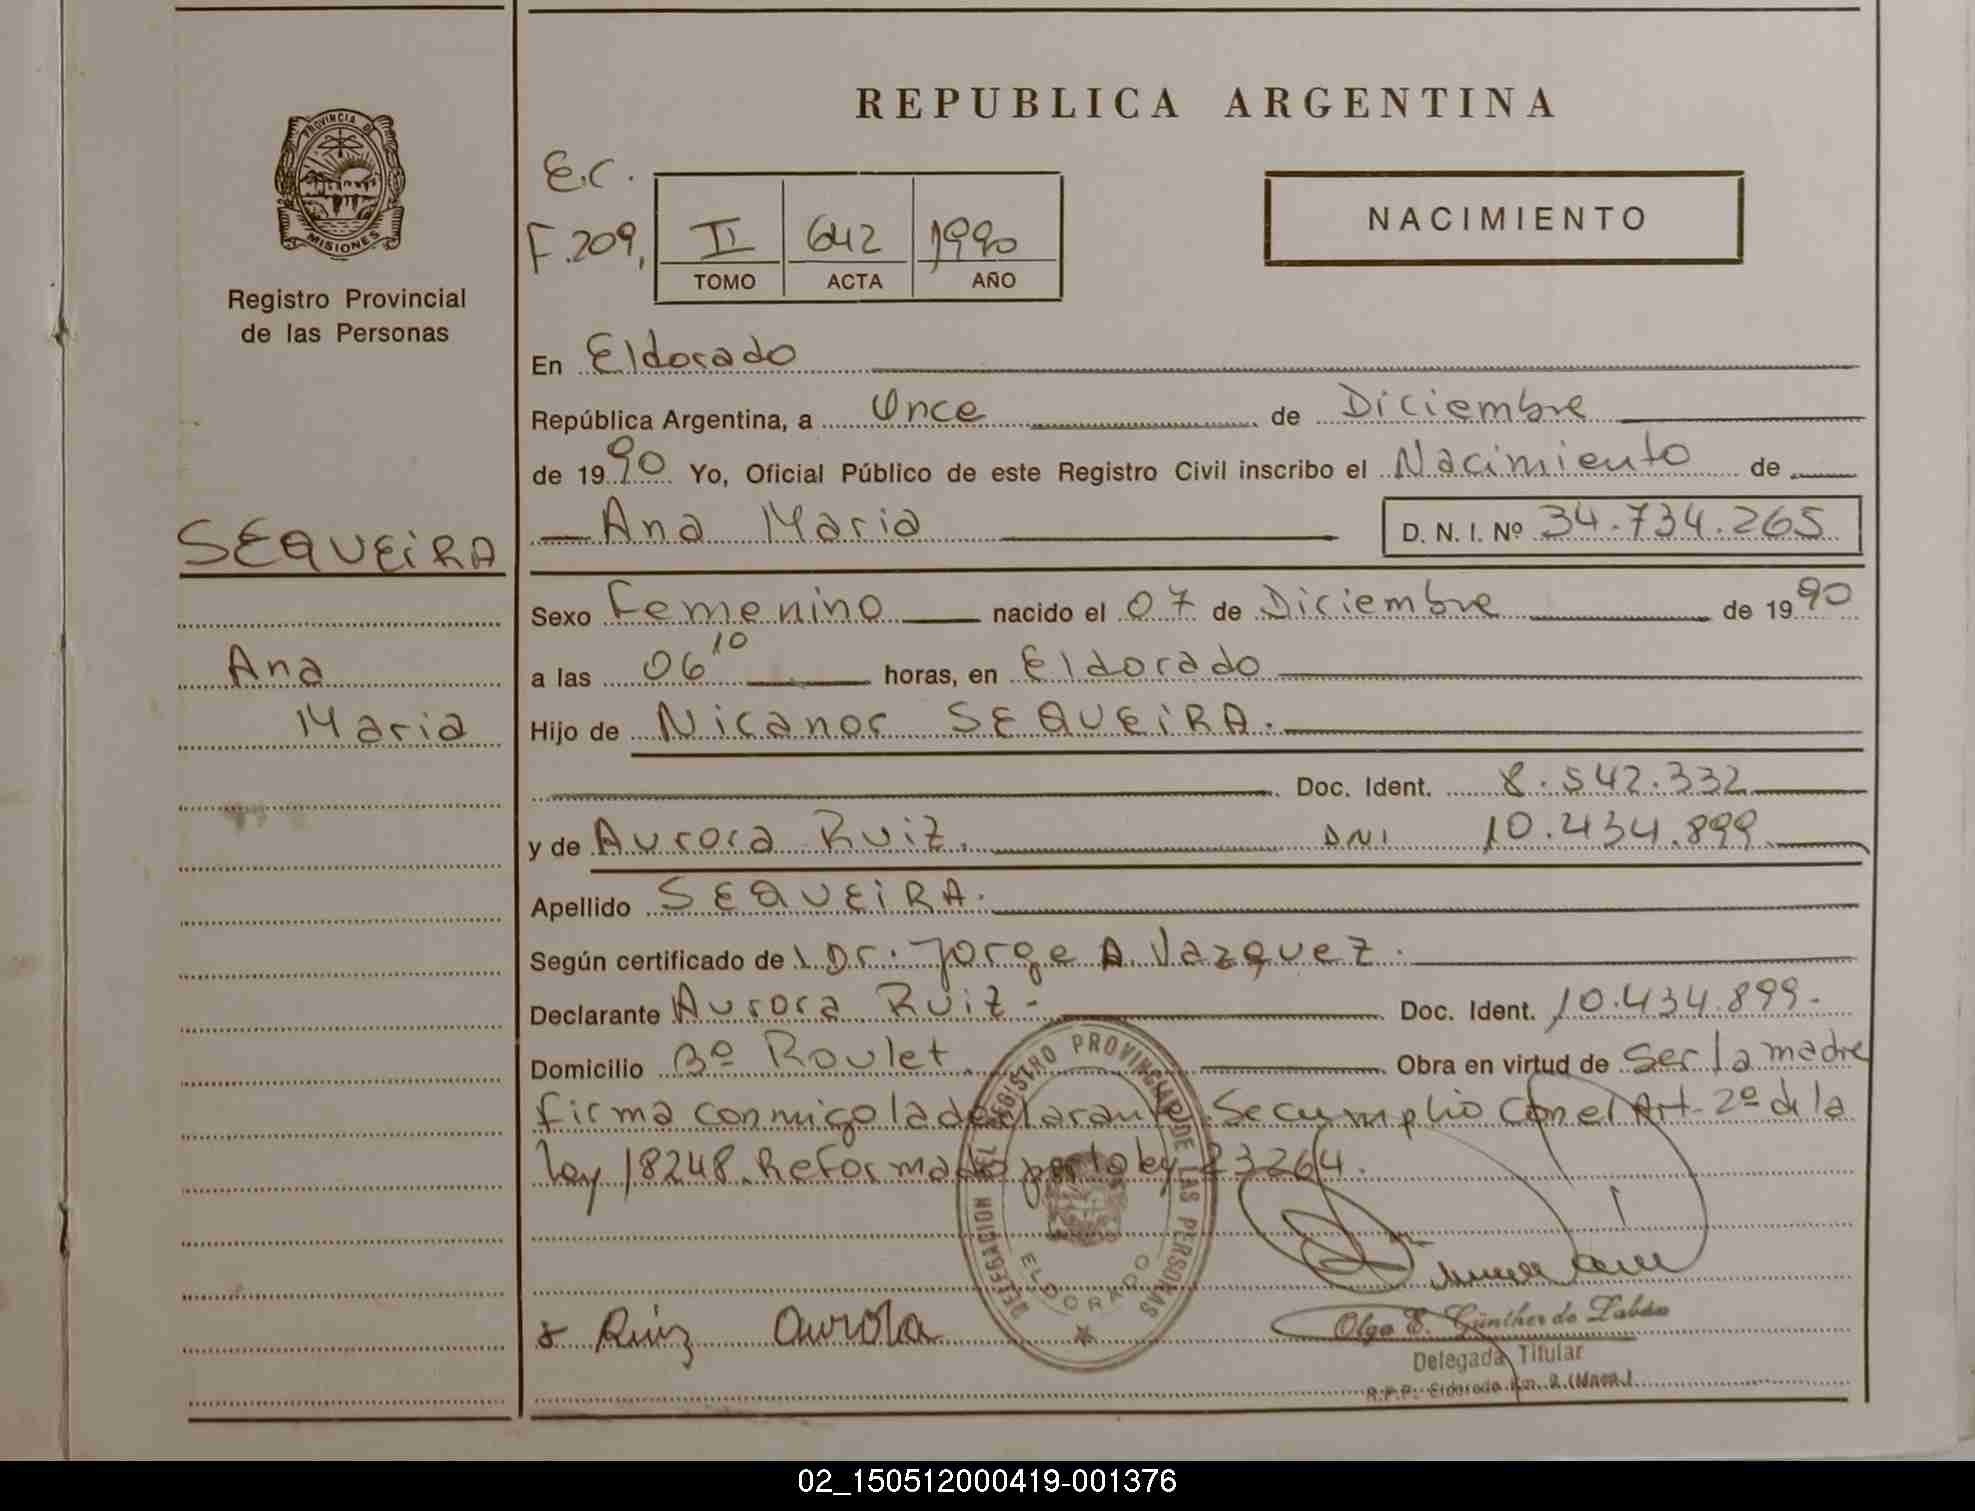 PROVINCIA DE
MISIONES
Registro Provincial
de las Personas
SEQUEIRA
Ana
Maria
REPUBLICA ARGENTINA
E.C.
F.209,
II 642 1990
TOMO ACTA AÑO
NACIMIENTO
En Eldorado
República Argentina, a Once de Diciembre
de 1990 Yo, Oficial Público de este Registro Civil inscribo el Nacimiento de
Ana Maria D. N. I. Nº 34.734.265
Sexo Femenino nacido el 07 de Diciembre de 1990
a las 06 10 horas, en Eldorado
Hijo de Nicanor SEQUEIRA.
Doc. Ident. 8.542.332
y de Aurora Ruiz. DNI 10.434.899
Apellido SEQUEIRA.
Según certificado de Dr. Jorge A. Vazquez.
Declarante Aurora Ruiz - Doc. Ident. 10.434.899.
Domicilio Bº Roulet. Obra en virtud de ser la madre
firma conmigo la declarante. Se cumplio con el Art. 2º de la
ley 18248. Reformado por la ley 23264.
REGISTRO PROVINCIAL DE LAS PERSONAS
DELEGACION
ELDORADO
Ruiz Aurora
Olga E. Günther de Zabán
Delegada Titular
R.P.P. Eldorado Km. 9 (Mnes.)
02_150512000419-001376